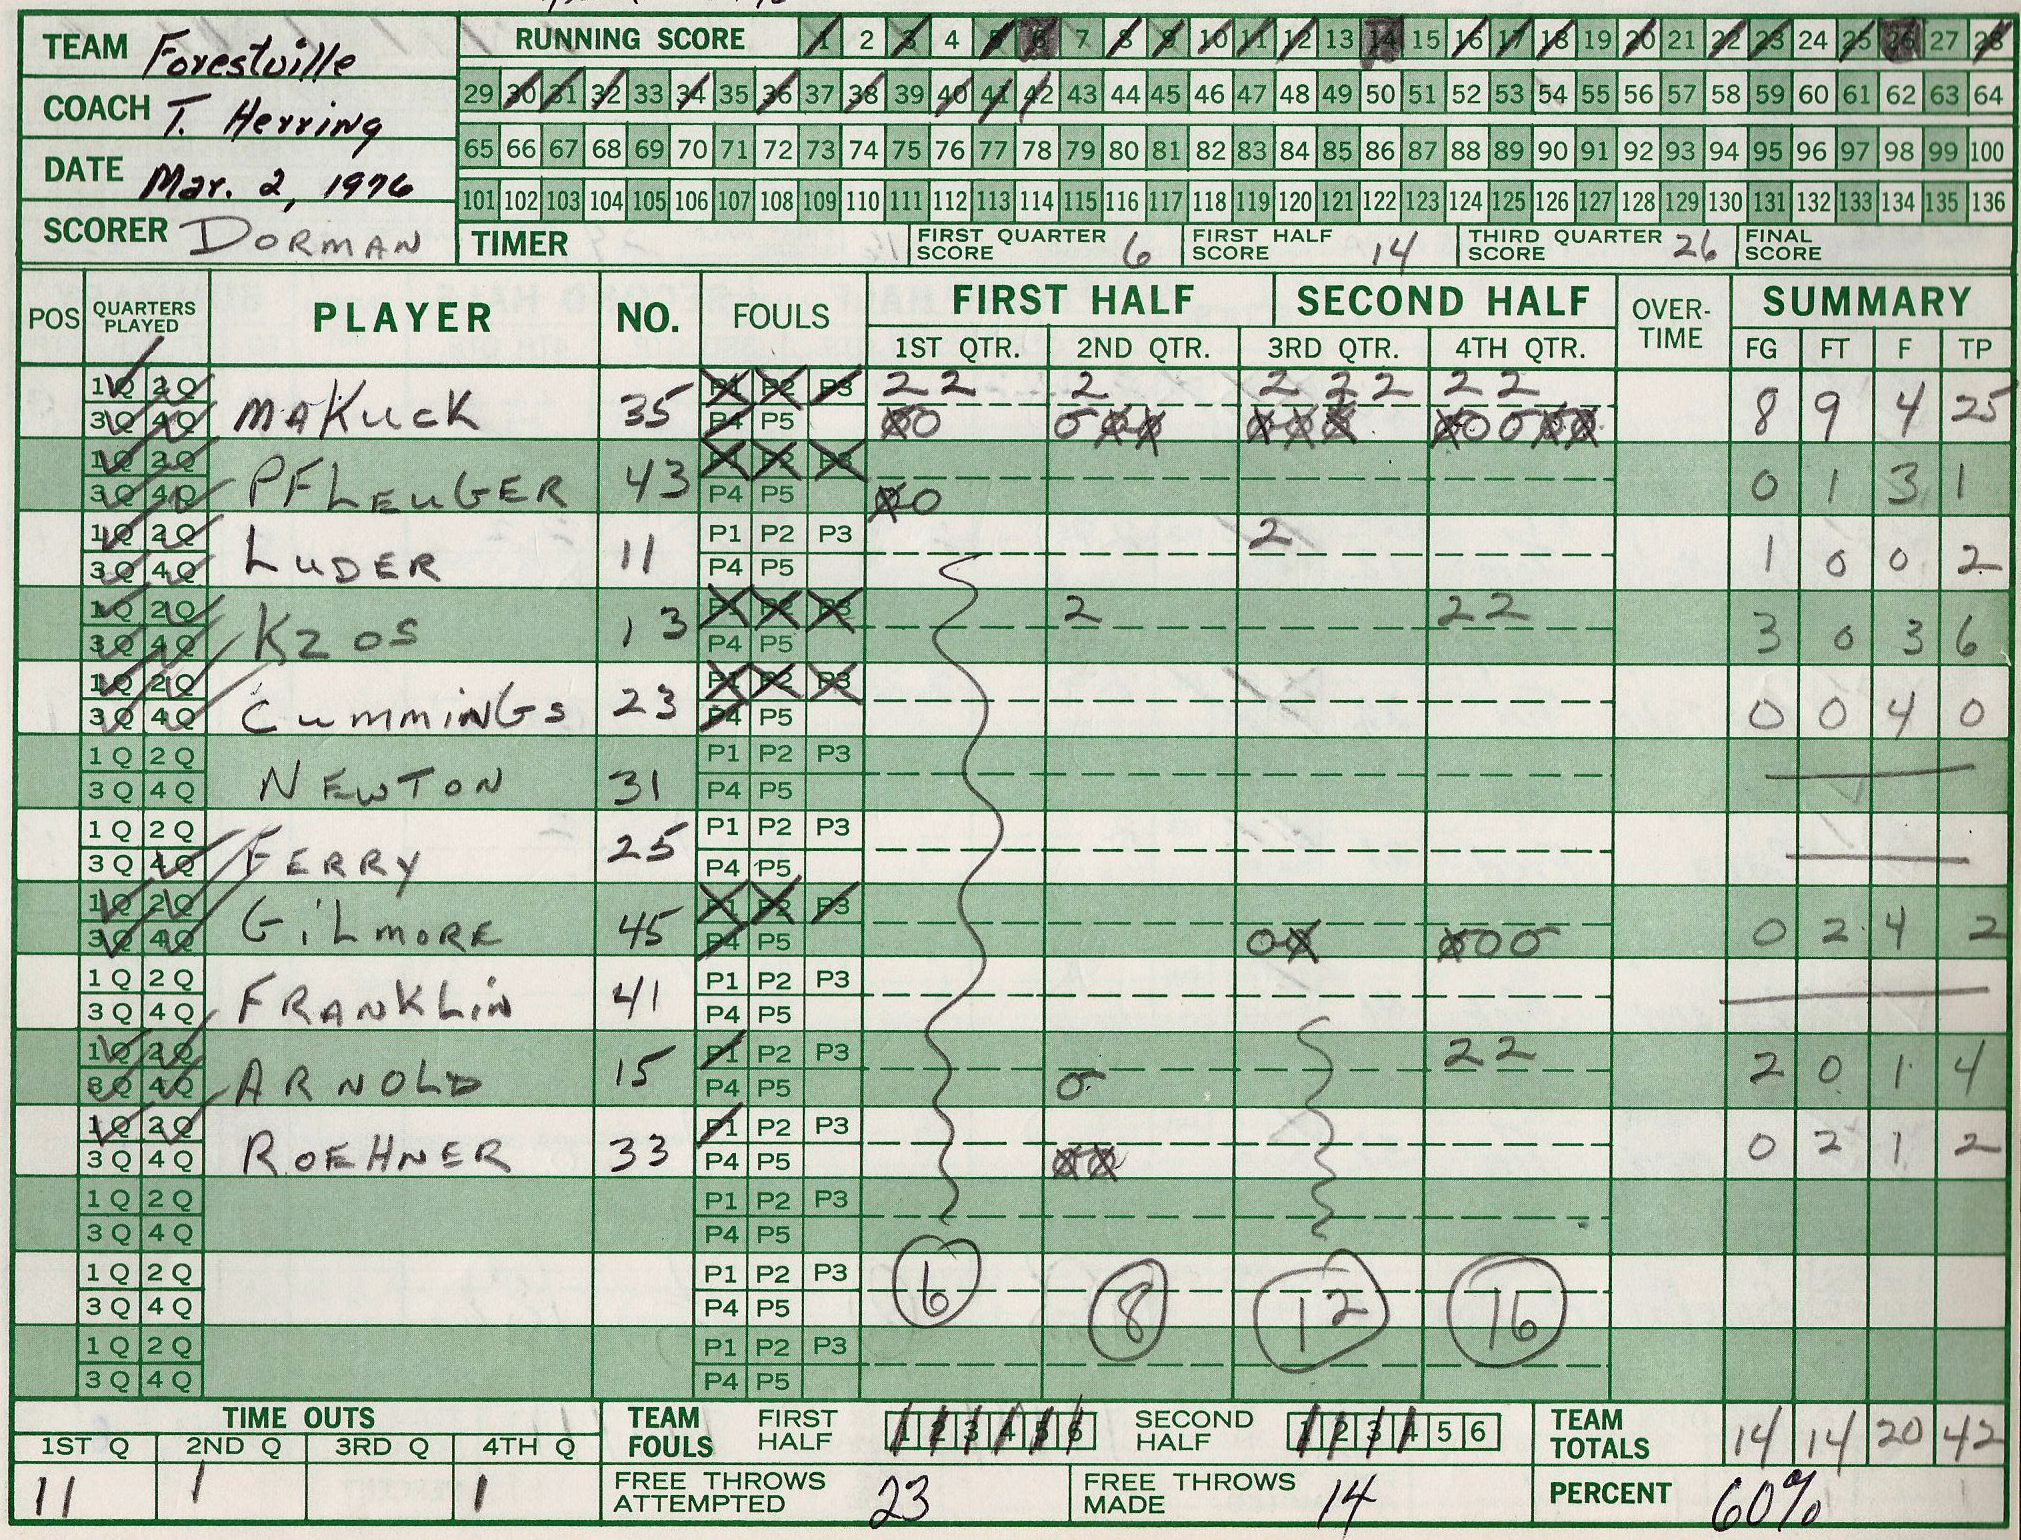 TEAM Forestville
COACH T. Herring
DATE Mar. 2, 1976
SCORER DORMAN
RUNNING SCORE 1 2 3 4 5 6 7 8 9 10 11 12 13 14 15 16 17 18 19 20 21 22 23 24 25 26 27 28
29 30 31 32 33 34 35 36 37 38 39 40 41 42 43 44 45 46 47 48 49 50 51 52 53 54 55 56 57 58 59 60 61 62 63 64
65 66 67 68 69 70 71 72 73 74 75 76 77 78 79 80 81 82 83 84 85 86 87 88 89 90 91 92 93 94 95 96 97 98 99 100
101 102 103 104 105 106 107 108 109 110 111 112 113 114 115 116 117 118 119 120 121 122 123 124 125 126 127 128 129 130 131 132 133 134 135 136
TIMER FIRST QUARTER SCORE 6 FIRST HALF SCORE 14 THIRD QUARTER SCORE 26 FINAL SCORE
POS QUARTERS PLAYED PLAYER NO. FOULS FIRST HALF SECOND HALF OVER-TIME SUMMARY
1ST QTR. 2ND QTR. 3RD QTR. 4TH QTR. FG FT F TP
1Q 2Q MAKUCK 35 P1 P2 P3 2 2 2 2 2 2 2 2 8 9 4 25
3Q 4Q P4 P5 0 0 0 0 0 0 0 0 0 0 0 0 0
1Q 2Q PFLEUGER 43 P1 P2 P3 0 1 3 1
3Q 4Q P4 P5 0 0
1Q 2Q LUDER 11 P1 P2 P3 2 1 0 0 2
3Q 4Q P4 P5
1Q 2Q KZOS 13 P1 P2 P3 2 2 2 3 0 3 6
3Q 4Q P4 P5
1Q 2Q CUMMINGS 23 P1 P2 P3 0 0 4 0
3Q 4Q P4 P5
1Q 2Q NEWTON 31 P1 P2 P3
3Q 4Q P4 P5
1Q 2Q FERRY 25 P1 P2 P3
3Q 4Q P4 P5
1Q 2Q GILMORE 45 P1 P2 P3 0 2 4 2
3Q 4Q P4 P5 0 0 0 0 0
1Q 2Q FRANKLIN 41 P1 P2 P3
3Q 4Q P4 P5
1Q 2Q ARNOLD 15 P1 P2 P3 2 2 2 0 1 4
3Q 4Q P4 P5 0
1Q 2Q ROEHNER 33 P1 P2 P3 0 2 1 2
3Q 4Q P4 P5 0 0
1Q 2Q P1 P2 P3
3Q 4Q P4 P5
1Q 2Q P1 P2 P3 6 8 12 16
3Q 4Q P4 P5
1Q 2Q P1 P2 P3
3Q 4Q P4 P5
TIME OUTS TEAM FOULS FIRST HALF 1 2 3 4 5 6 SECOND HALF 1 2 3 4 5 6 TEAM TOTALS 14 14 20 42
1ST Q 2ND Q 3RD Q 4TH Q
11 1 1 FREE THROWS ATTEMPTED 23 FREE THROWS MADE 14 PERCENT 60%